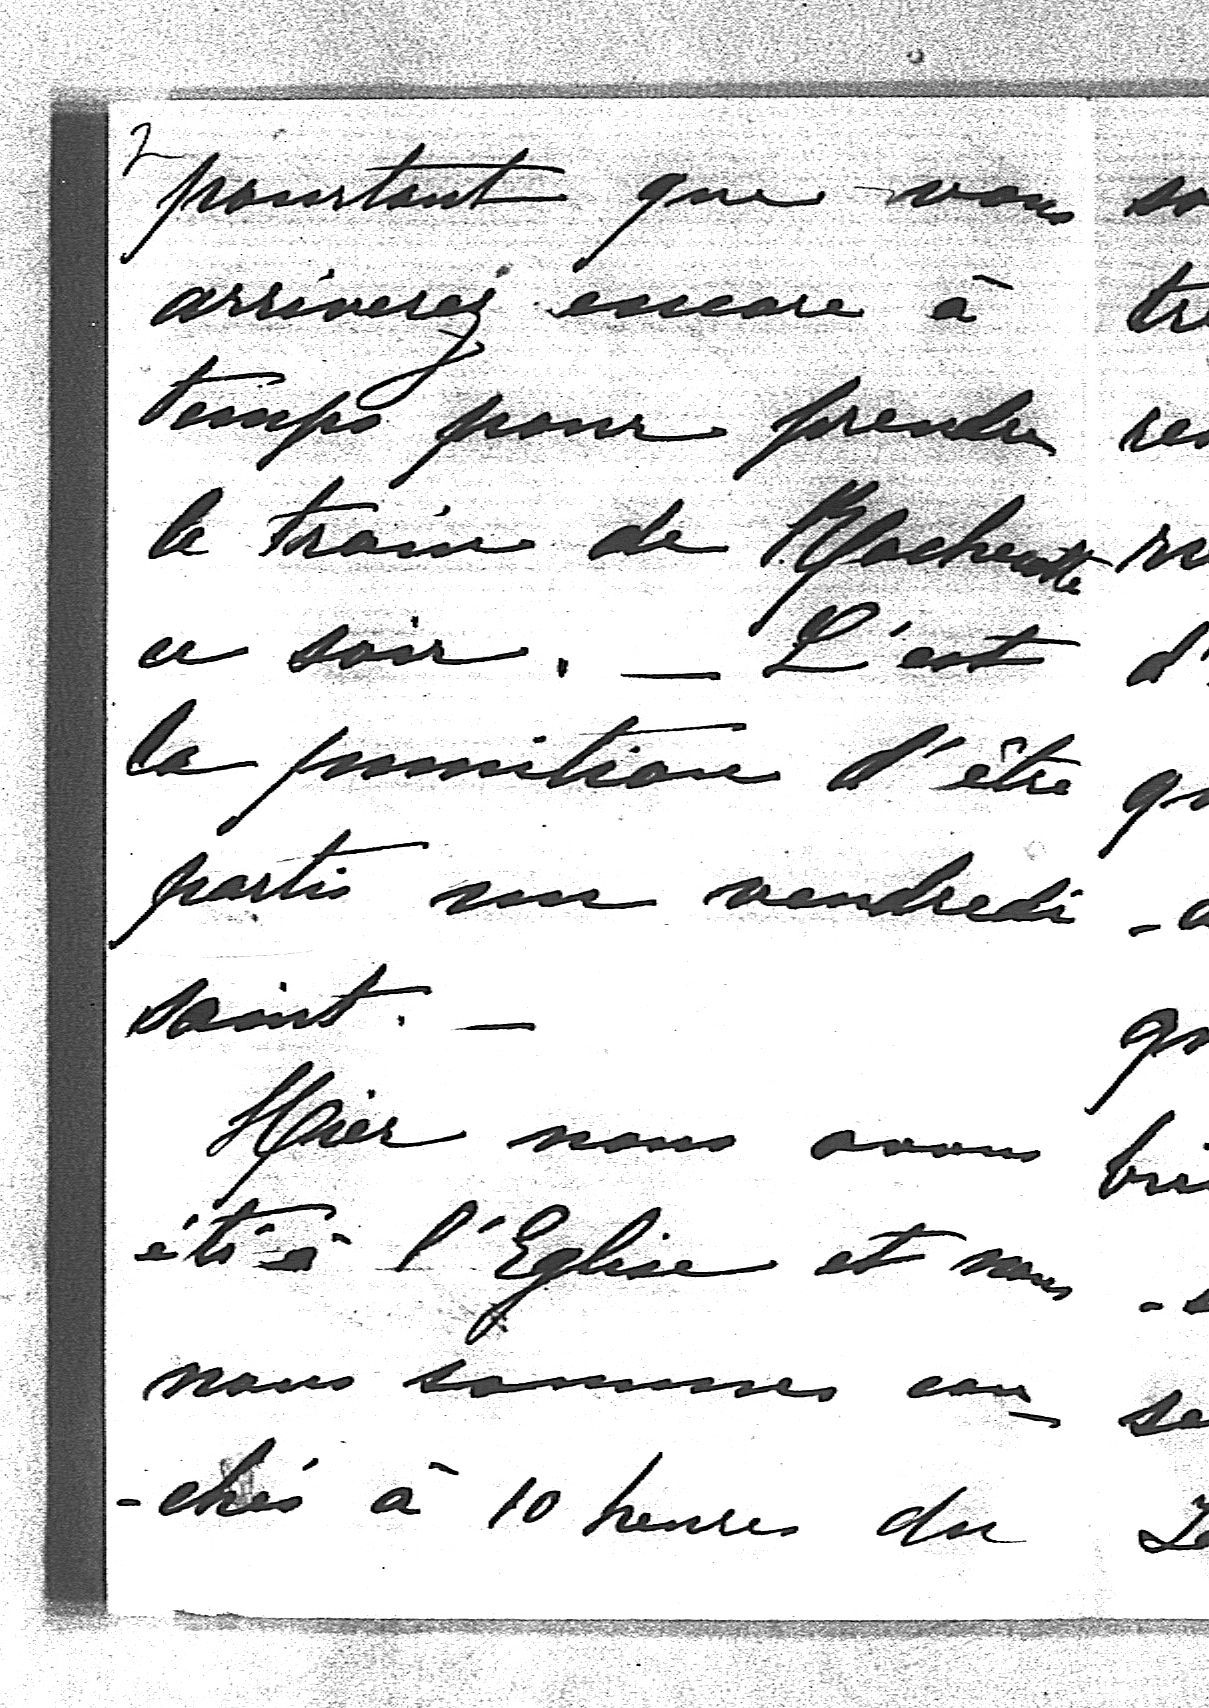 2
pourtant que vous
arriverez encore à
temps pour prendre
le train de
ce soir. — C'est
la punition d'être
partis un vendredi
saint. —
Hier nous avons
été à l'Eglise et nous
nous sommes cou-
-chés à 10 heures du